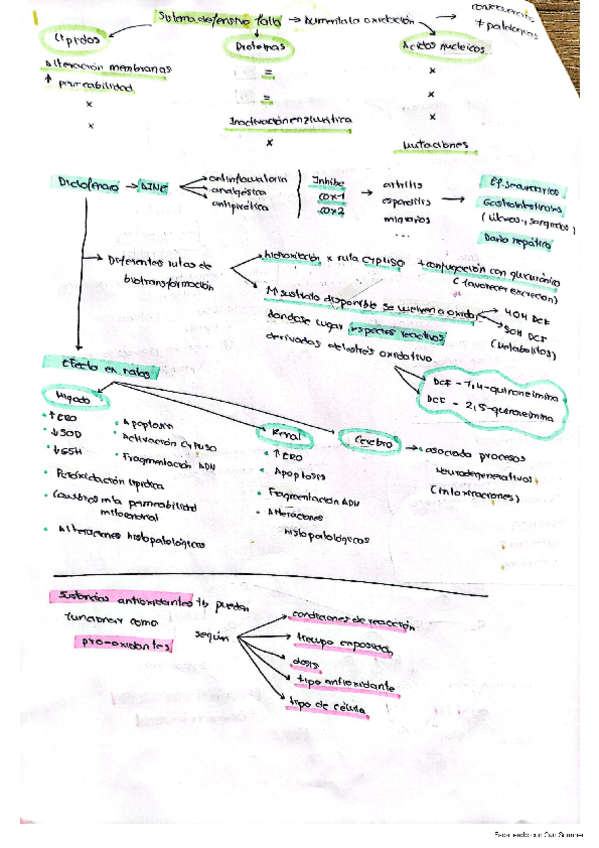 Sistema defensivo falla → Aumenta la oxidación → consecuencia
+ patologías
Lípidos
Proteínas
Ácidos nucleicos
Alteración membranas
=
x
↑ permeabilidad
=
x
x
Inactivación enzimática
x
x
Mutaciones
Diclofenaco → AINE
antiinflamatoria
analgésica
antipirética
Inhibe
COX-1
COX-2
artritis
migrañas
...
Ef. secundarios
Gastrointestinales
(Úlceras, sangrados)
Daño hepático
Diferentes rutas de
biotransformación
hidroxilación x ruta CYP450 + conjugación con glucurónico
(favorecer excreción)
sustrato disponible se vuelven a oxidar
4OH DCF
5OH DCF
(Metabolitos)
dándose lugar especies reactivas
derivadas del estrés oxidativo
DCF - 1,4-quinoneimina
DCF - 2,5-quinoneimina
Efecto en ratas
Hígado
↑ ERO
↓ SOD
↓ GSH
Apoptosis
Activación CYP450
Fragmentación ADN
Peroxidación lipídica
Cambios en la permeabilidad
mitocondrial
Alteraciones histopatológicas
Renal
↑ ERO
Apoptosis
Fragmentación ADN
Alteraciones
histopatológicas
Cerebro → asociada procesos
Neurodegenerativos
(intoxicaciones)
Sustancias antioxidantes tb pueden
funcionar como
pro-oxidantes
según
condiciones de reacción
tiempo
dosis
tipo antioxidante
tipo de célula
Escaneado con CamScanner